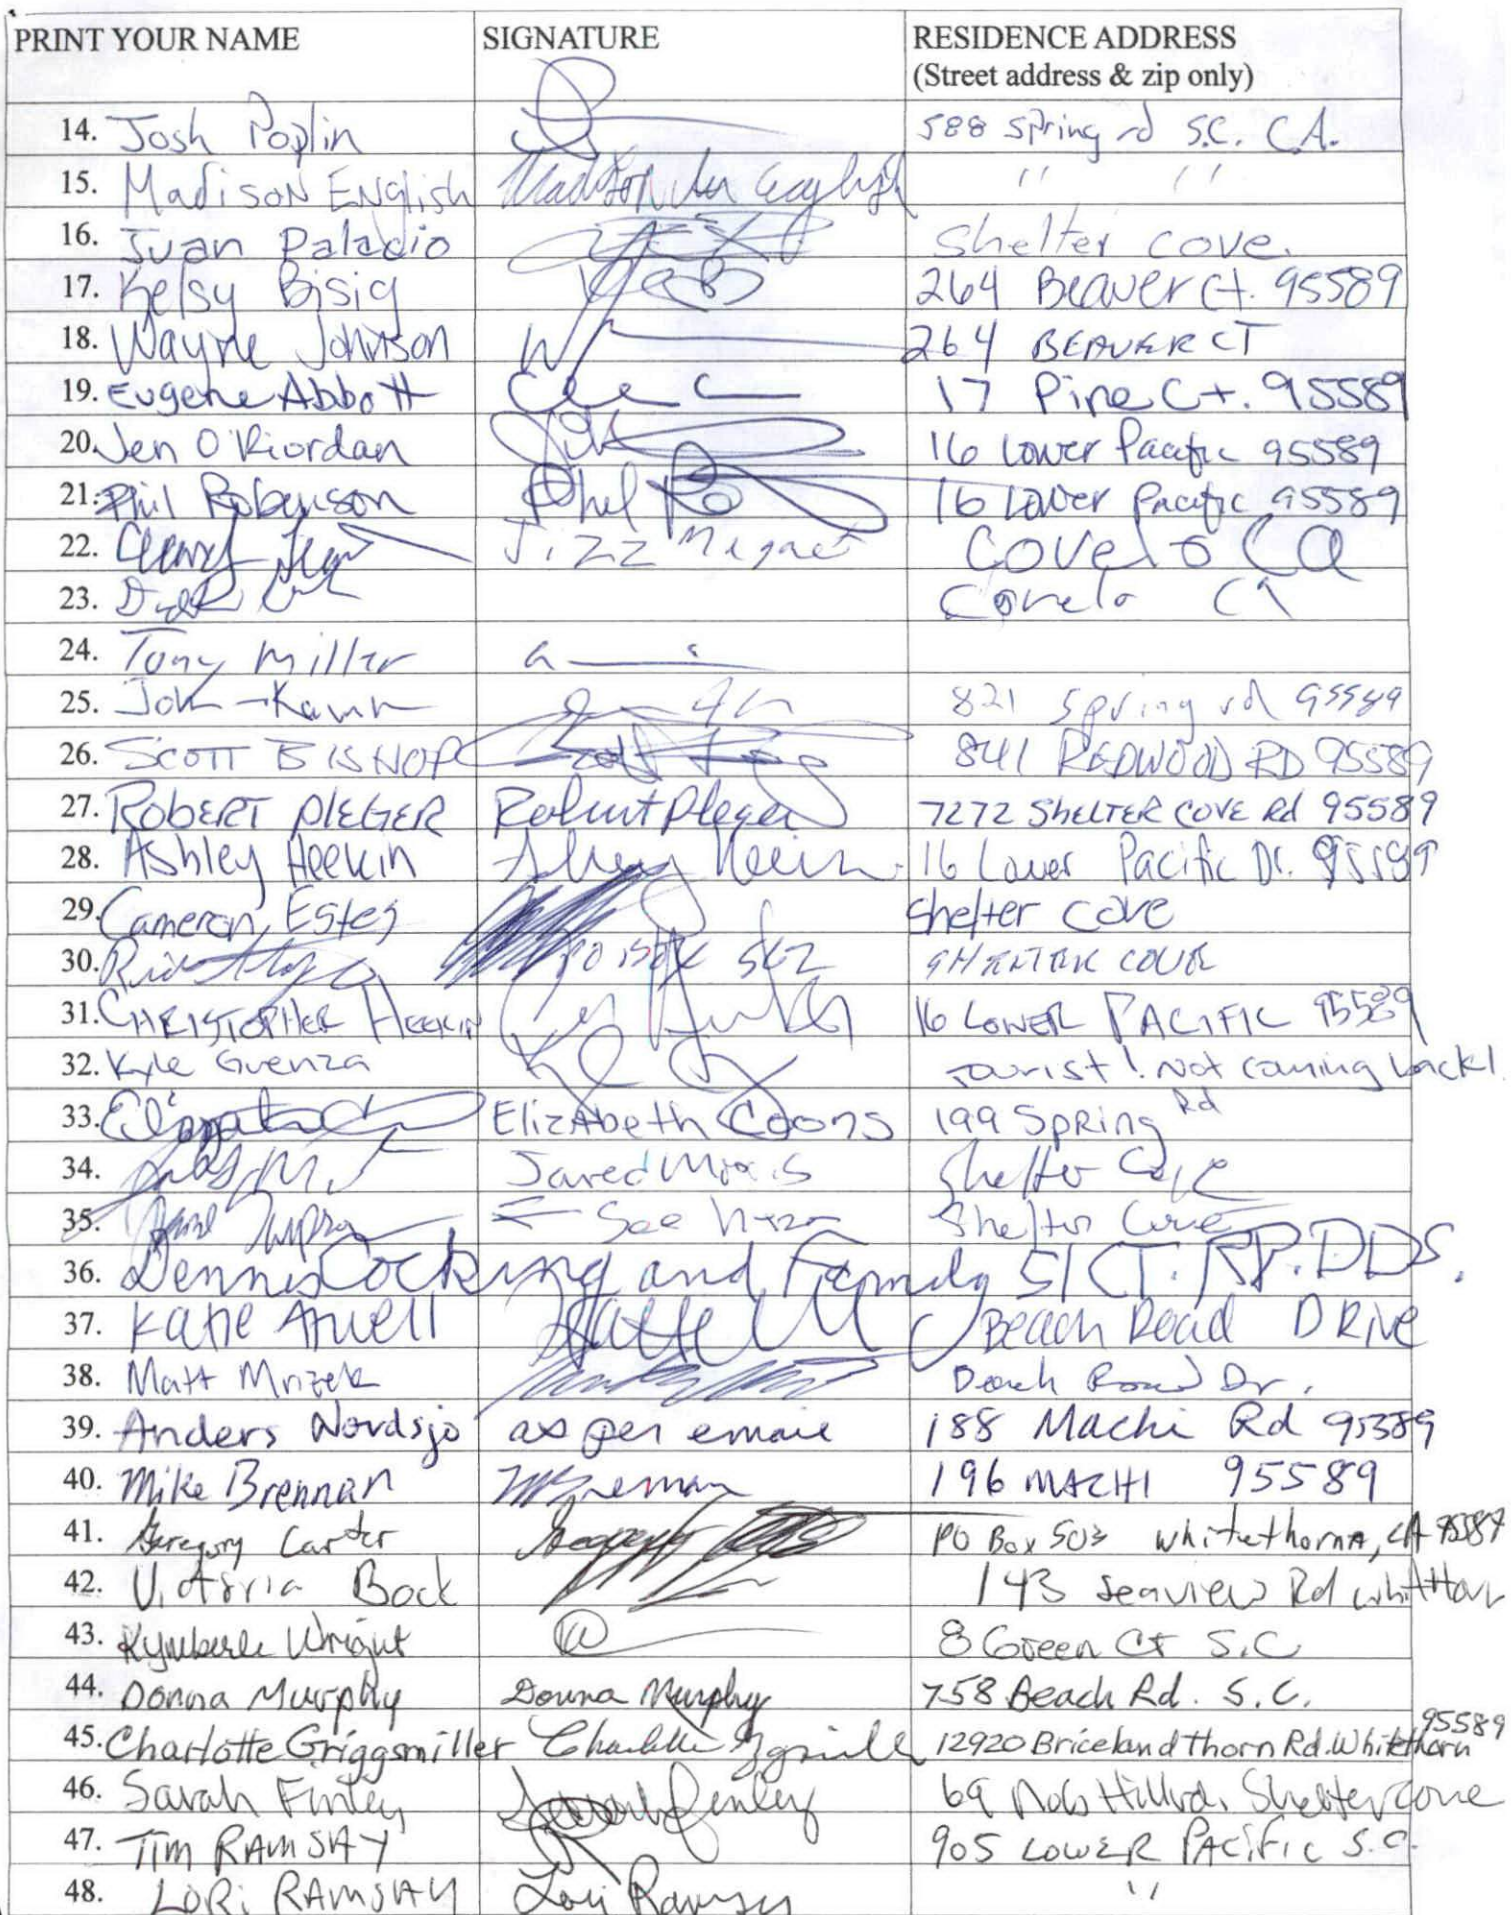 PRINT YOUR NAME SIGNATURE RESIDENCE ADDRESS
(Street address & zip only)
14. Josh Poplin 588 Spring rd S.C. CA.
15. Madison English " "
16. Juan Paladio Shelter cove.
17. Kelsy Bisig 264 Beaver Ct. 95589
18. Wayne Johnson 264 BEAVER CT
19. Eugene Abbott 17 Pine Ct. 95589
20. Jen O'Riordan 16 Lower Pacific 95589
21. Phil Robenson 16 Lower Pacific 95589
22. Covelo CA
23. Covelo CA
24. Tony Miller
25. 821 Spring rd 95589
26. SCOTT BISHOP 841 REDWOOD RD 95589
27. ROBERT PLEGER Robert Pleger 7272 SHELTER COVE Rd 95589
28. Ashley Heekin 16 Lower Pacific Dr. 95589
29. Cameron Estes Shelter cove
30.
31. CHRISTOPHER HEEKIN 16 LOWER PACIFIC 95589
32. Kyle Guenza Tourist! Not coming back!
33. Elizabeth Coons 199 Spring Rd
34. Jared Shelter Cove
35. See Shelter Cove
36. Dennis Cocking and Family 51 CT.
37. Katie Beach Road DRive
38. Matt Mrizek Road Dr.
39. Anders Nordsjo as per email 188 Machi Rd 95589
40. Mike Brennan 196 MACHI 95589
41. Gregory Carter PO Box 503 Whitethorn, CA 95589
42. Victoria Bock 143 Seaview Rd
43. Kymberle Wright @ 8 Green Ct S.C
44. Donna Murphy Donna Murphy 758 Beach Rd. S.C.
45. Charlotte Griggsmiller 12920 Briceland thorn Rd. Whitethorn 95589
46. Sarah Finley Sarah Finley 69 Nob Hill rd. Shelter cove
47. TIM RAMSAY 905 LOWER PACIFIC S.C.
48. LORI RAMSAY Lori Ramsay "